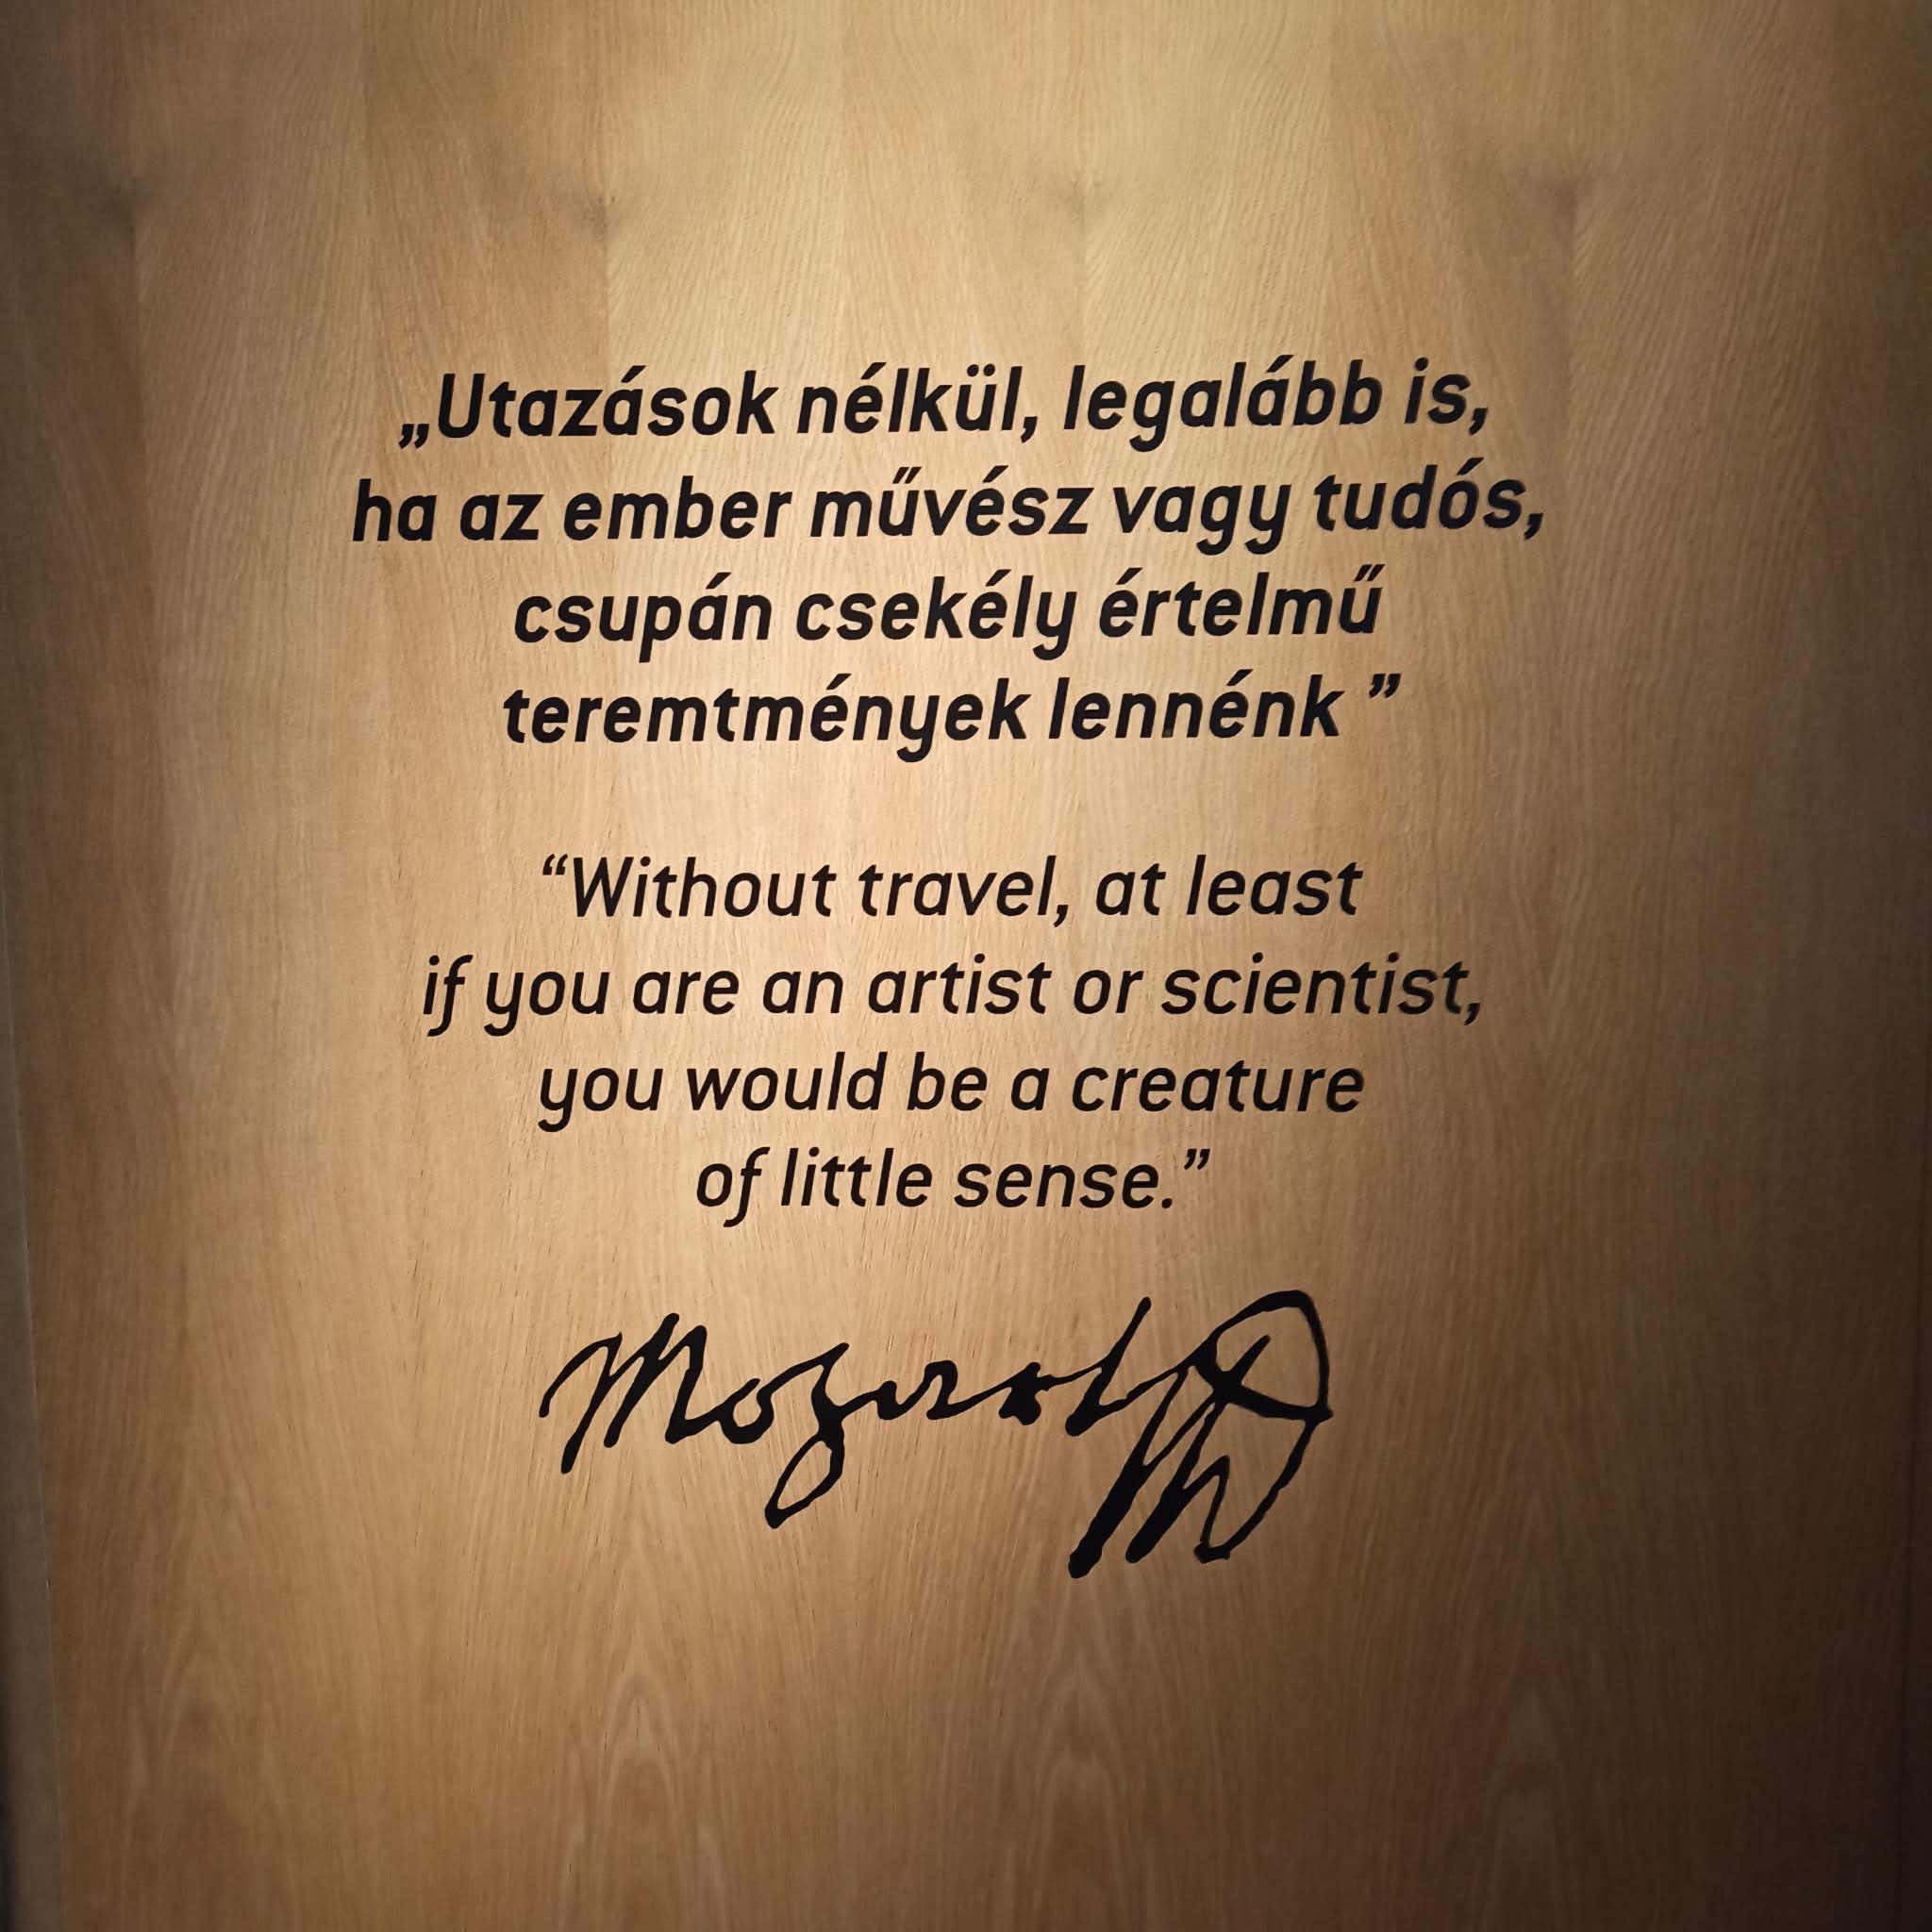 „Utazások nélkül, legalább is,
ha az ember művész vagy tudós,
csupán csekély értelmű
teremtmények lennénk ”
“Without travel, at least
if you are an artist or scientist,
you would be a creature
of little sense.”
Mozart